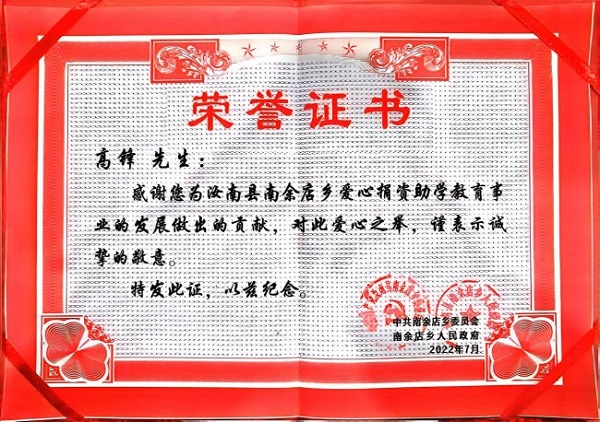 荣誉证书
高锋 先生：
感谢您为汝南县南余店乡爱心捐资助学教育事
业的发展做出的贡献，对此爱心之举，谨表示诚
挚的敬意。
特发此证，以兹纪念。
中共南余店乡委员会
南余店乡人民政府
2022年7月